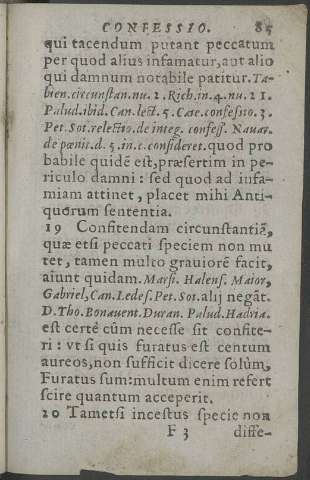 CONFESSIO. 85
qui tacendum putant peccatum
per quod alius infamatur, aut alio
qui damnum notabile patitur. Ta-
bien. circunstan. nu. 2. Rich. in. 4. nu. 21.
Palud. ibid. Can. lect. 5. Caie. confessio. 3.
Pet. Sot. relectio. de integ. confess. Nauar.
de pœnit. d. 5. in. c. consideret. quod pro
babile quidẽ est, præsertim in pe-
riculo damni: sed quod ad infa-
miam attinet, placet mihi Anti-
quorum sententia.
19 Confitendam circunstantiã,
quæ etsi peccati speciem non mu
tet, tamen multo grauiorẽ facit,
aiunt quidam. Marsi. Halens. Maior,
Gabriel, Can. Ledes. Pet. Sot. alij negãt.
D. Tho. Bonauent. Duran. Palud. Hadria.
est certè cùm necesse sit confite-
ri: vt si quis furatus est centum
aureos, non sufficit dicere solùm,
Furatus sum: multum enim refert
scire quantum acceperit.
20 Tametsi incestus specie non
F 3 diffe-